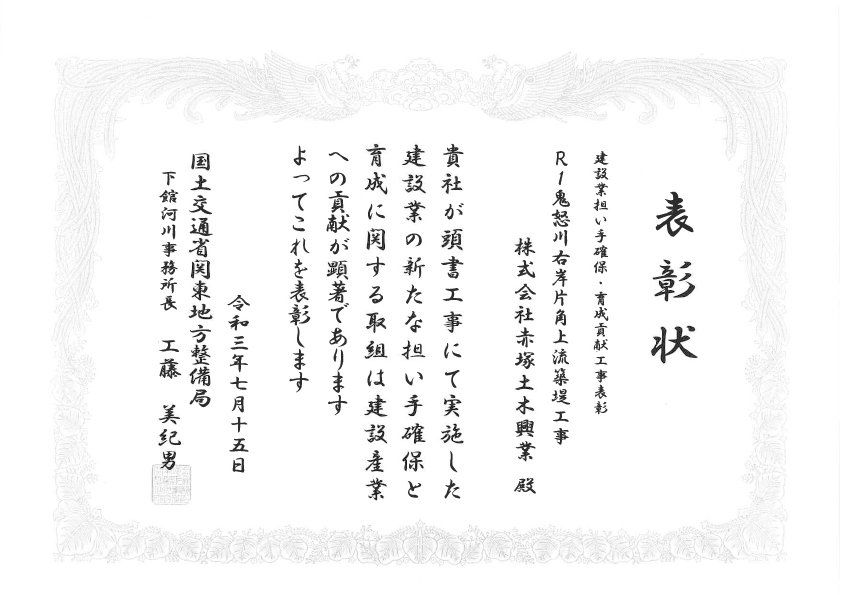 表彰状
建設業担い手確保・育成貢献工事表彰
R1鬼怒川右岸片角上流築堤工事
株式会社赤塚土木興業 殿
貴社が頭書工事にて実施した
建設業の新たな担い手確保と
育成に関する取組は建設産業
への貢献が顕著であります
よってこれを表彰します
令和三年七月十五日
国土交通省関東地方整備局
下館河川事務所長 工藤 美紀男